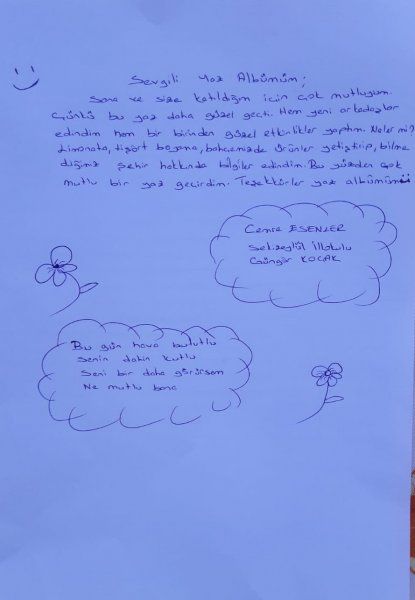 Sevgili Yaz Albümüm;
Sana ve size katıldığım için çok mutluyum.
Çünkü bu yaz daha güzel geçti. Hem yeni arkadaşlar
edindim hem bir birinden güzel etkinlikler yaptım. Neler mi?
Limonata, tişört boyama, bahçemizde ürünler yetiştirip, bilme
diğimiz şehir hakkında bilgiler edindim. Bu yüzden çok
mutlu bir yaz geçirdim. Teşekkürler yaz albümüm
Cemre ESENLER
Sekizeylül İlkokulu
Güngör KOÇAK
Bu gün hava bulutlu
Senin dahin kutlu
Seni bir daha görürsem
Ne mutlu bana